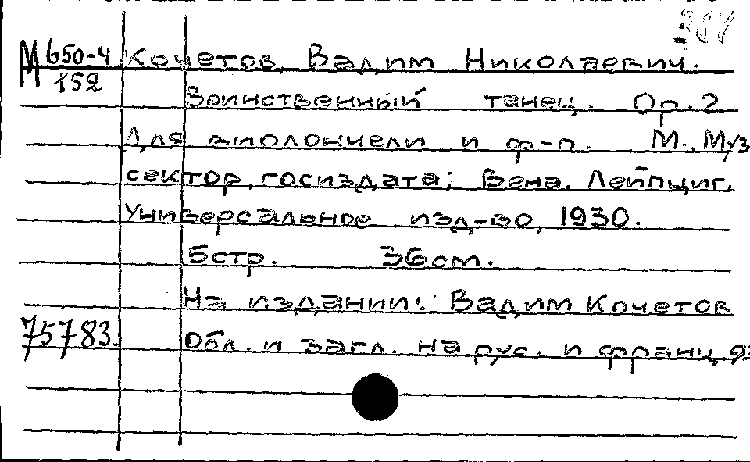 М 650-4 Кочетов, Вадим Николаевич.
152
Воинственный танец. Op. 2
Для виолончели и ф-п. М., Муз
сектор госиздата; Вена. Лейпциг,
Универсальное изд-во, 1930.
5стр. 36см.
На издании: Вадим Кочетов
75783. Обл. и загл. на рус. и франц. яз